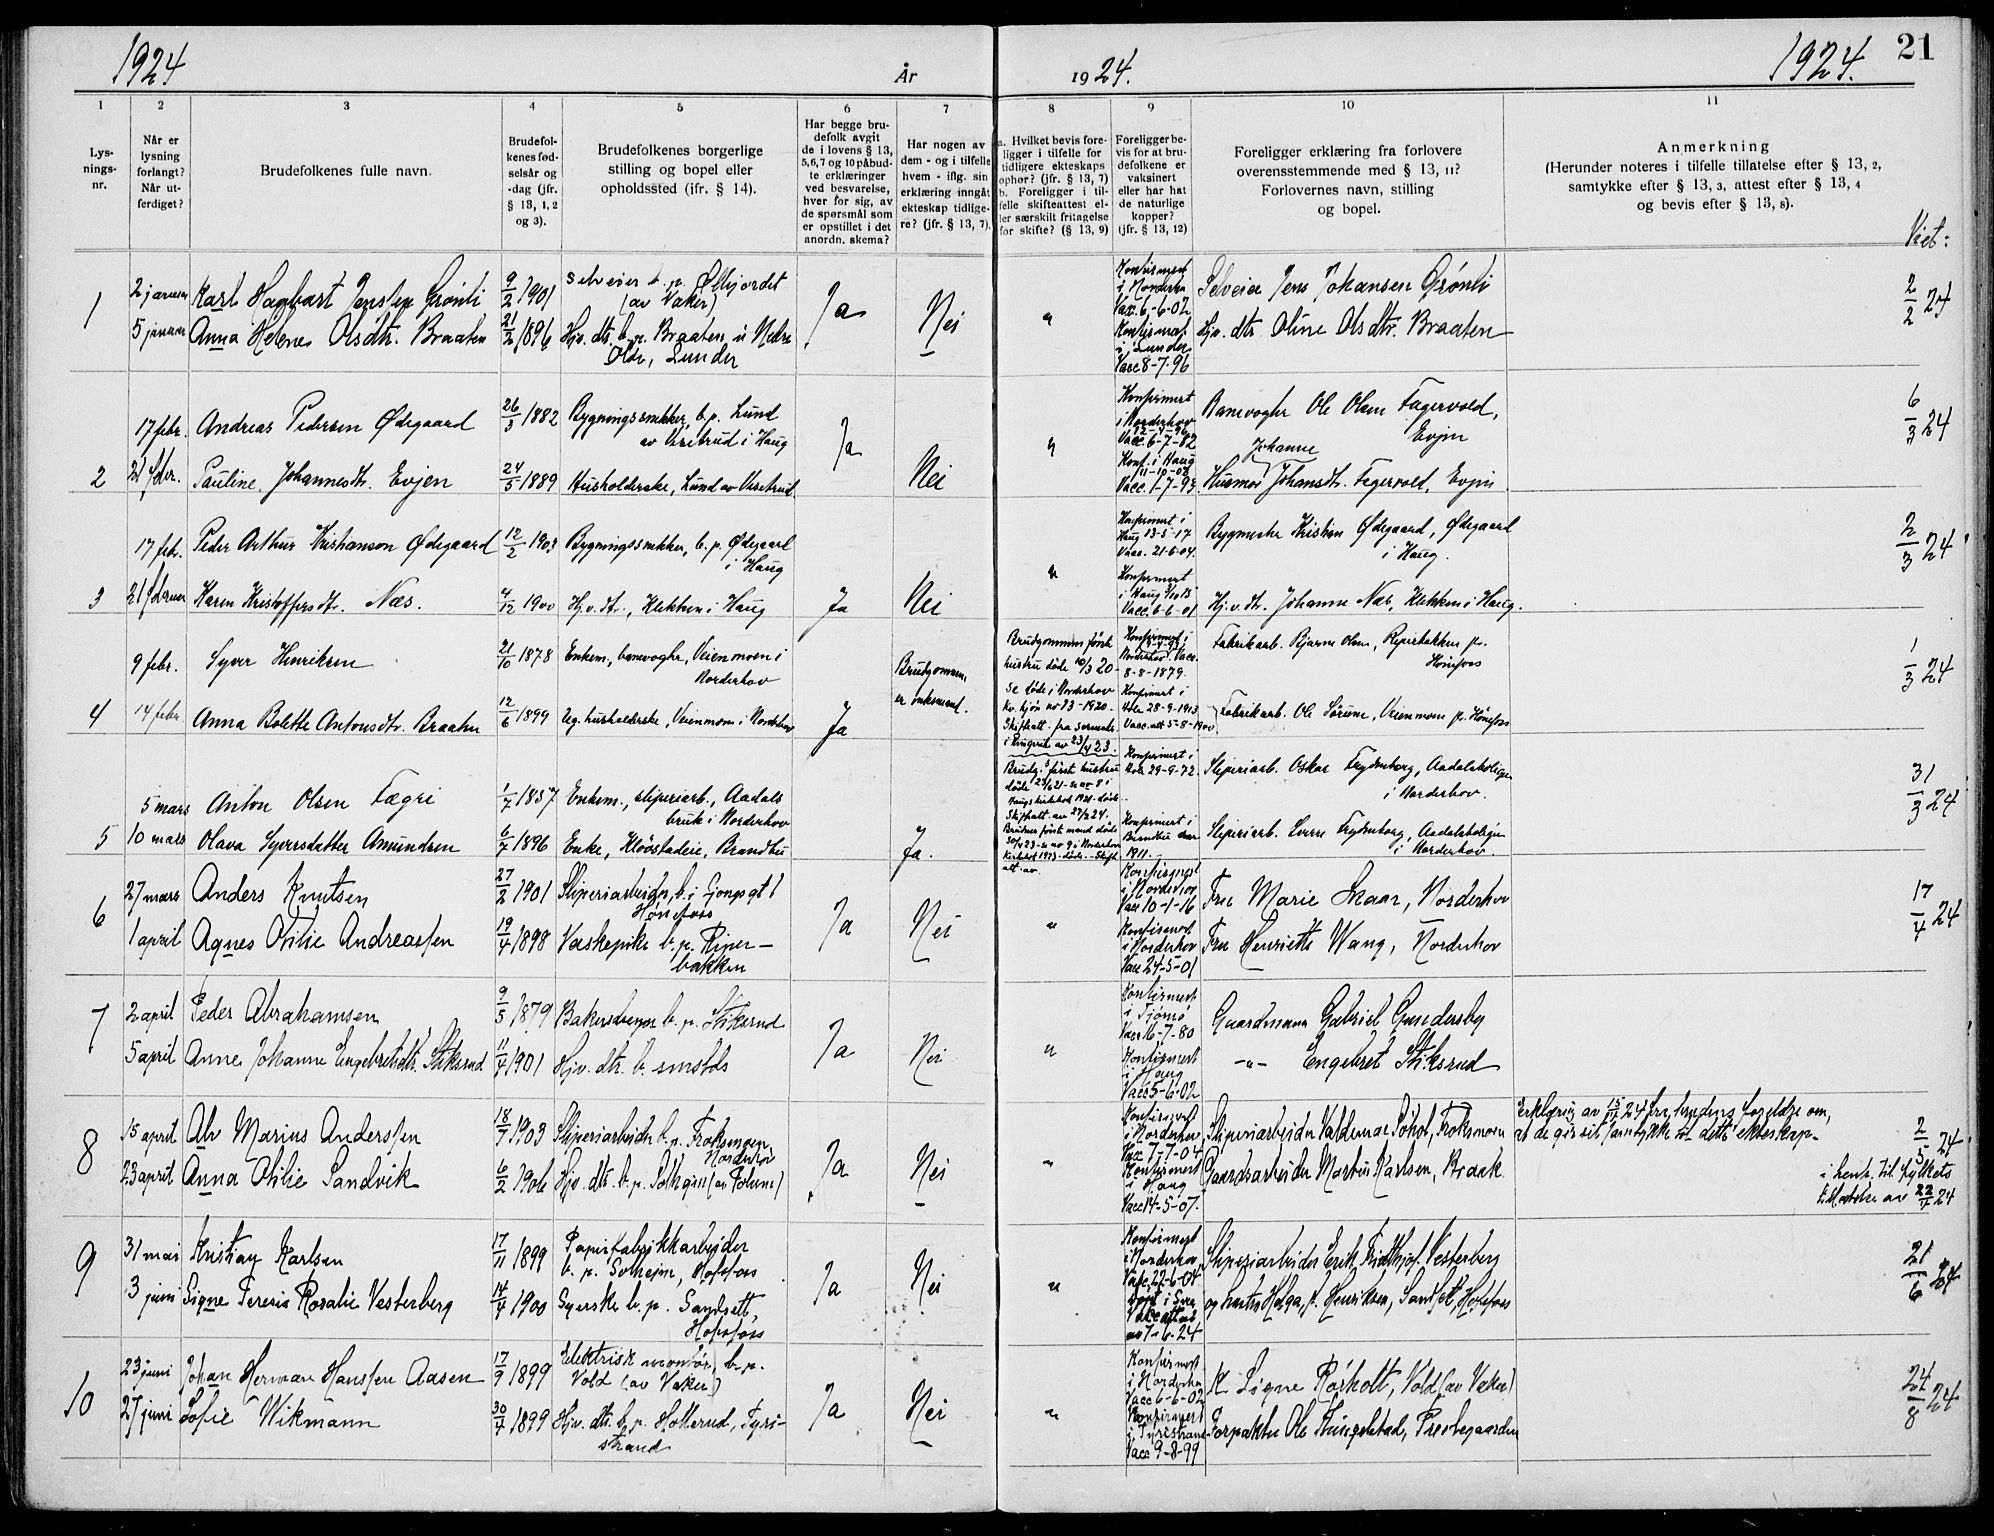 1924 År 1924. 1924. 21
1 2 3 4 5 6 7 8 9 10 11
Lys-
nings-
nr.
Når er
lysning
forlangt?
Når ut-
ferdiget?
Brudefolkenes fulle navn.
Brudefol-
kenes fød-
selsår og
-dag (jfr.
§ 13, 1, 2
og 3).
Brudefolkenes borgerlige
stilling og bopel eller
opholdssted (jfr. § 14).
Har begge bru-
defolk avgit
de i lovens § 13,
5, 6, 7 og 10 påbud-
te erklæringer
ved besvarelse,
hver for sig, av
de spørsmål som
er opstillet i det
anordn. skema?
Har nogen av
dem - og i tilfelle
hvem - iflg. sin
erklæring inngåt
ekteskap tidlige-
re? (jfr. § 13, 7).
a. Hvilket bevis fore-
ligger i tilfelle for
tidligere ekteskaps
ophør? (jfr. § 13, 7)
b. Foreligger i til-
felle skifteattest el-
ler særskilt fritagelse
for skifte? (§ 13, 9)
Foreligger be-
vis for at bru-
defolkene er
vaksinert
eller har hat
de naturlige
kopper?
(jfr. § 13, 12)
Foreligger erklæring fra forlovere
overensstemmende med § 13, 11?
Forlovernes navn, stilling
og bopel.
Anmerkning
(Herunder noteres i tilfelle tillatelse efter § 13, 2,
samtykke efter § 13, 3, attest efter § 13, 4
og bevis efter § 13, 8).
Viet:
1 2 januar Karl Hagbart Jensen Grønli 9/2 1901 Selveier b. p. Ølhjordet
(av Vaker) Ja Nei " Konfirmert
i Norderhov
Vac. 6-6-02 Selveier Jens Johansen Grønli 2/2 24
5 januar Anna Helene Olsdtr. Braaten 21/2 1896 Hjv. dtr. b. p. Braaten u Nedre
Olde, Lunder Konfirmert
i Lunder
Vacc 8-7-96 Hjv. dtr. Oline Olsdtr. Braaten
17 febr. Andreas Pedersen Ødegaard 26/3 1882 Bygningssnekker, b. p. Lund
av Vesetrud i Haug Ja Nei " Konfirmert
i Norderhov
Vacc. 6-7-82 Banevogter Ole Olsen Fagervold,
Evjen 6/3 24
2 21 febr. Pauline Johannesdtr. Evjen 24/5 1889 Husholderske, Lund av Vesetrud Konf. i Haug
11-10-03 Husmor Johanne Johansdtr. Fagervold, Evjen
17 febr. Peder Arthur Kristianson Ødegaard 12/2 1903 Bygningssnekker, b. p. Ødegaard
i Haug Konfirmert i
Haug 13-5-17
Vacc. 21-6-04. Bygmester Kristian Ødegaard, Ødegaard
i Haug. 2/3 24
3 21 februar Karen Kristoffersdtr. Næs. 4/12 1900 Hj. v. dt., Klekken i Haug Ja Nei " Konfirmert
i Haug
Vacc. 6-6-01 Hj. v. dtr. Johanne Næs, Klekken i Haug.
9 febr. Syver Henriksen 21/10 1878 Enkem., banevogter, Veienmoen i
Norderhov Brudgommen
er enkemand. Brudgommens første
hustru døde 10/3 20 -
se døde i Norderhov
kv. kjøn no 23-1920.
Skifteatt. fra sorenskr.
i Ringerike av 23/4 23. Konfirmert i
Norderhov. Vacc.
8-8-1879. Fabrikarb. Bjarne Olsen, Riperbakken pr.
Hønefoss 1/3 24
4 14 febr Anna Bolette Antonsdtr. Braaten 12/6 1899 Ug. husholderske, Veienmoen i Norderhov Ja Konfirmert i
Hole 28-9-1913
Vacc. att 5-8-1900 Fabrikarb. Ole Sørum, Veienmoen pr. Hønefoss
5 mars Anton Olsen Fægri 1/7 1857 Enkem., sliperiarb., Aadals
bruk i Norderhov Brudg.s første hustru
døde Konfirmert i
Hole 29-9-72. Sliperiarb. Oskar Frydenborg, Aadalsboliger
i Norderhov. 31/3 24
5 10 mars Olava Syversdatter Amundsen 6/7 1896 Enke, Kløvstadeie, Brandbu Ja. Brudens første mand døde Konfirmert i
Brandbu
1911. Sliperiarb. Sverre Frydenborg, Aadalsboliger
i Norderhov.
6 27 mars Anders Knutsen 27/2 1901 Sliperiarbeider, b. i Gongsgt 1
Hønefoss Ja Nei " Konfirmert
i Norderhov
Vacc 10-1-16 Fru Marie Skaar, Norderhov 17/4 24
1 april Agnes Otilie Andreassen 19/4 1898 Vaskepike b. p. Riper-
bakken Konfirmert
i Norderhov
Vacc 24-5-01 Fru Henriette Wang, Norderhov
7 2 april Peder Abrahamsen 9/5 1879 Bakersvenn b. p. Stiksrud Ja Nei " Konfirmert
i Tjømø
Vacc 16-7-80 Gaardmann Gabriel Gundersby
5 april Anne Johanne Engebretsdtr. Stiksrud 11/4 1901 Hjv. dtr. b. smstds Konfirmert
i Haug
Vacc 5-6-02 -"- Engebret Stiksrud
8 15 april Alv Marius Anderssen 18/7 1903 Sliperiarbeider b. p. Froksmoen
Norderhov Ja Nei " Konfirmert
i Norderhov
Vac 7-7-04 Sliperiarbeider Valdemar Sohol, Froksmoen Erklæring av 15/4 24 fra brudens foreldre om,
at de gir sit samtykke til dette ekteskap - 2/5 24
23 april Anna Otilie Sandvik 6/2 1906 Hjv. dtr. b. p. Konfirmert
i Haug
Vacc 14-5-07. Gaardsarbeider Martin Karlsen, Braak i henh. til fylkets
tillatelse av 22/4 24
9 31 mai Kristian Karlsen 17/11 1899 Papirfabrikkarbeider
b. p. Solheim, Hofsfoss Ja Nei " Konfirmert
i Norderhov
Vacc. 22-6-04 Sliperiarbeider Erik Fridthjof Vesterberg 21/6 24
3 juni Signe Teresie Rosalie Vesterberg 14/4 1900 Syerske b. p. Sandsett,
Hofsfoss av 7-6-24 og hustru Helga, f. Henriksen, Sandsett, Hofsfoss
10 23 juni Johan Herman Hanssen Aasen 17/9 1899 Elektrisk montør, b. p.
Vold (av Vaker) Ja Nei " Konfirmert
i Norderhov
Vacc 6-6-02 Signe Røsholt, Vold (av Vaker) 24/8 24
27 juni Sofie Wikmann 30/4 1899 Hjv. dtr. b. p. Hollerud, Tyri-
strand Konfirmert
i Tyristrand
Vacc 9-8-99 Forpakter Ole Klingelstad, Prestegaarden